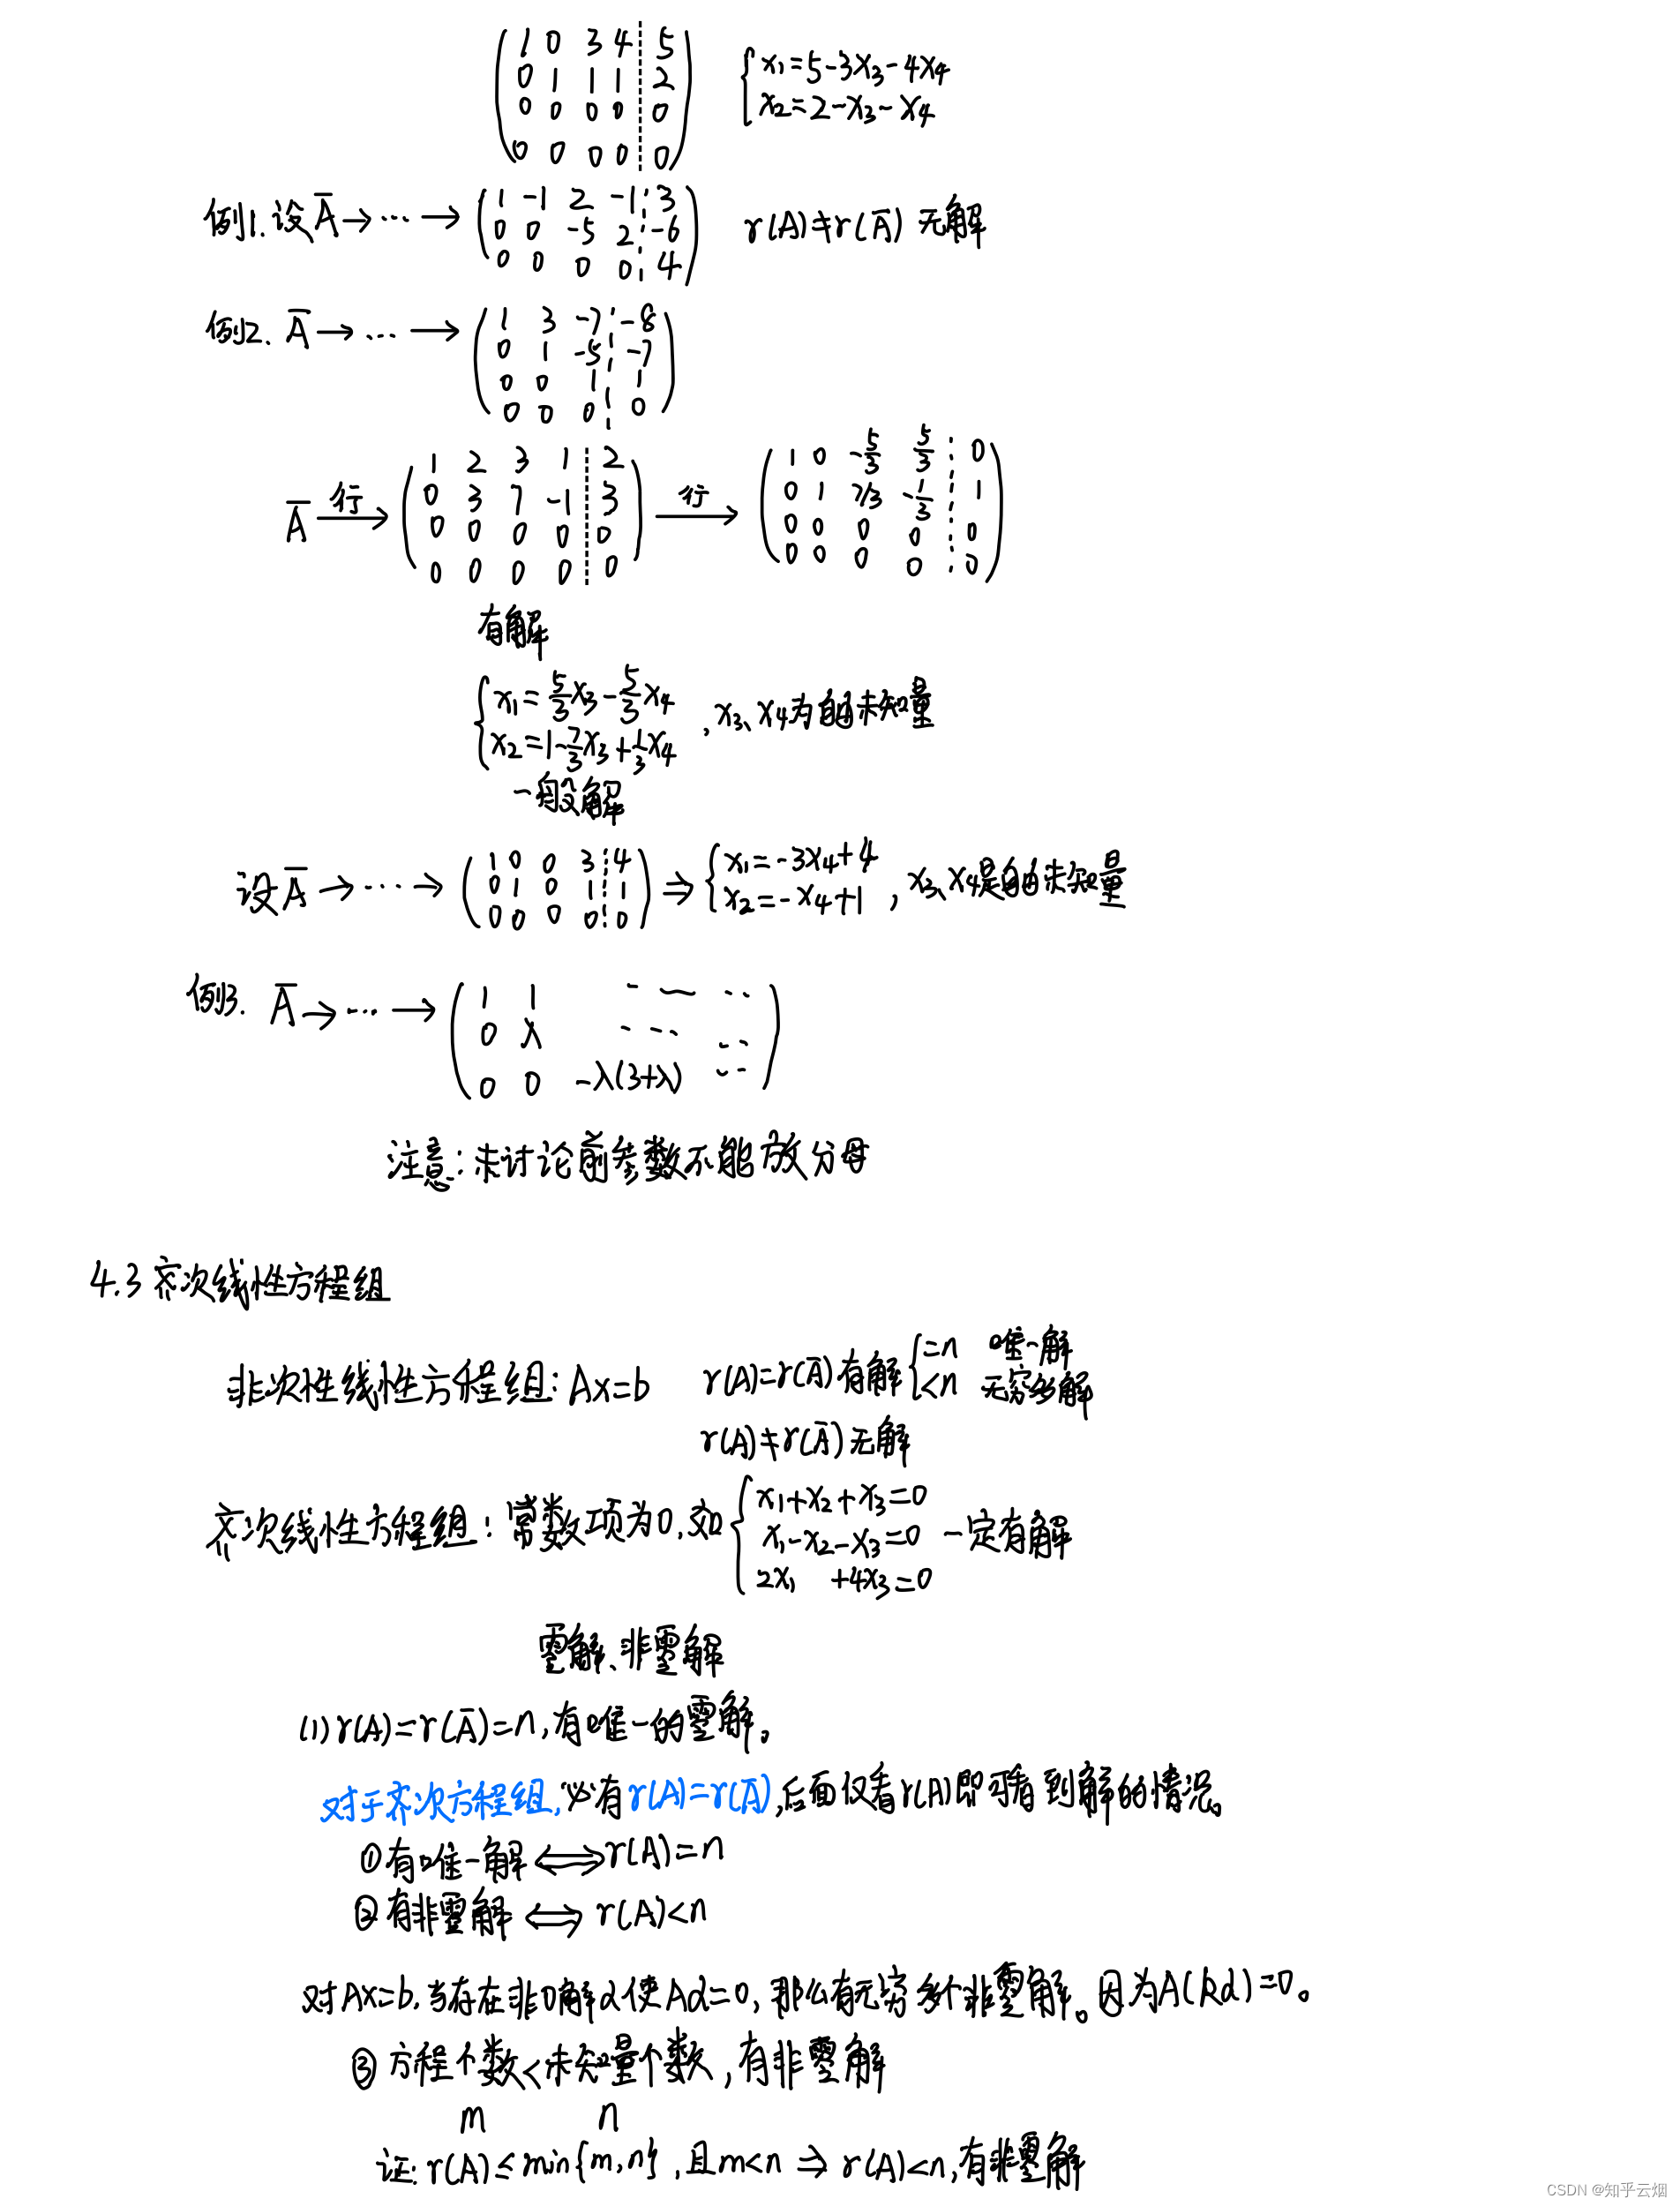 ( 1 0 3 4 ┊ 5 )
( 0 1 1 1 ┊ 2 ) { x₁=5-3x₃-4x₄
( 0 0 0 0 ┊ 0 ) { x₂=2-x₃-x₄
( 0 0 0 0 ┊ 0 )
例1.设 A̅ → ⋯ → ( 1 -1 2 -1 ┊ 3 ) r(A)≠r(A̅) 无解
( 0 0 -5 2 ┊ -6 )
( 0 0 0 0 ┊ 4 )
例2. A̅ → ⋯ → ( 1 3 -7 ┊ -8 )
( 0 1 -5 ┊ -7 )
( 0 0 1 ┊ 1 )
( 0 0 0 ┊ 0 )
( 1 2 3 1 ┊ 2 ) ( 1 0 -5/3 5/3 ┊ 0 )
A̅ 行→ ( 0 3 7 -1 ┊ 3 ) 行→ ( 0 1 7/3 -1/3 ┊ 1 )
( 0 0 0 0 ┊ 0 ) ( 0 0 0 0 ┊ 0 )
( 0 0 0 0 ┊ 0 ) ( 0 0 0 0 ┊ 0 )
有解
{ x₁=5/3x₃-5/3x₄
{ x₂=1-7/3x₃+1/3x₄ , x₃、x₄为自由未知量
一般解
设 A̅ → ⋯ → ( 1 0 0 3 ┊ 4 ) ⇒ { x₁=-3x₄+4
( 0 1 0 1 ┊ 1 ) { x₂=-x₄+1 , x₃、x₄是自由未知量
( 0 0 0 0 ┊ 0 )
例3. A̅ → ⋯ → ( 1 1 ⋯ ⋯ )
( 0 λ ⋯ ⋯ )
( 0 0 -λ(3+λ) ⋯ )
注意:未讨论前参数不能放分母
4.3 齐次线性方程组
非次性线性方程组: Ax=b r(A)=r(A̅) 有解 { =n 唯一解
{ <n 无穷多解
r(A)≠r(A̅) 无解
齐次线性方程组: 常数项为0,如 { x₁+x₂+x₃=0
{ x₁-x₂-x₃=0 一定有解
{ 2x₁ +4x₃=0
零解、非零解
(1) r(A)=r(A̅)=n,有唯一的零解。
对于齐次方程组,必有r(A)=r(A̅),后面仅看r(A)即可看到解的情况。
① 有唯一解 ⟺ r(A)=n
② 有非零解 ⟺ r(A)<n
对Ax=b,当存在非0解α使Aα=0,那么有无穷多个非零解。因为A(kα)=0。
③ 方程个数<未知量个数,有非零解
m n
证: r(A)≤min{m,n},且m<n ⇒ r(A)<n,有非零解
CSDN @知乎云烟